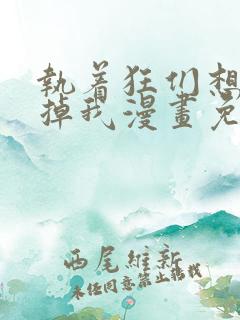 執着狂们想
掉我漫畫免
西尾維新
未经同意禁止转载